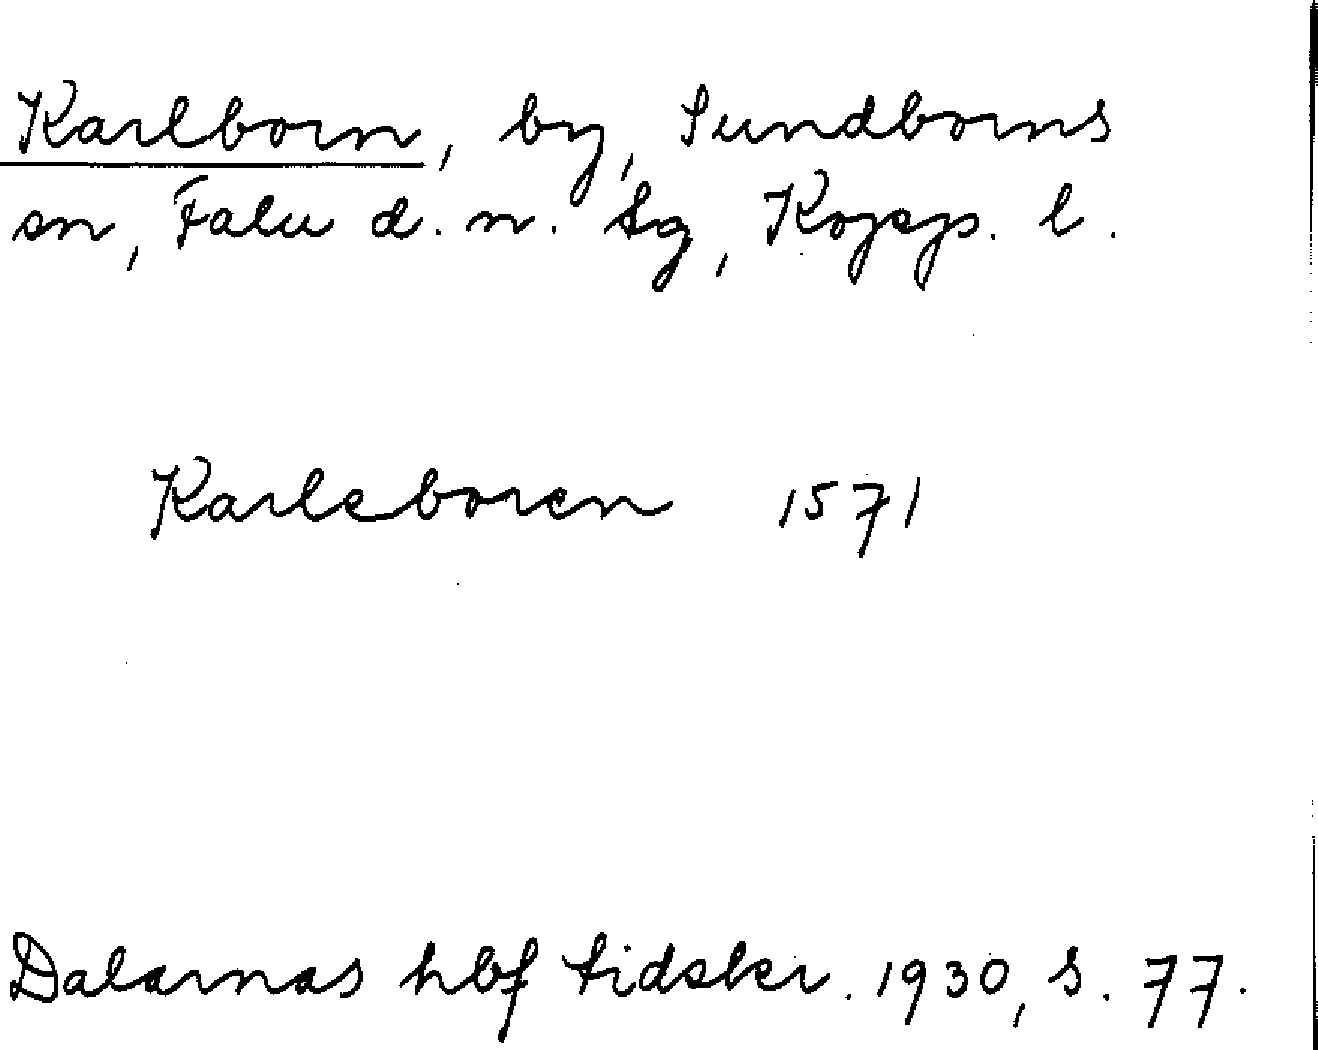 Karlborn, by, Sundborns
sn, Falu d. n. tg, Kopp. l.
Karleboren 1571
Dalarnas hbf tidskr. 1930, s. 77.